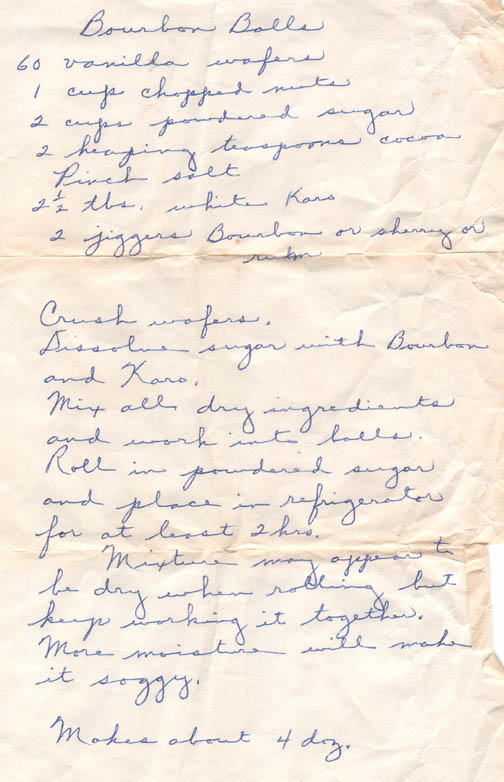 Bourbon Balls
60 vanilla wafers
1 cup chopped nuts
2 cups powdered sugar
2 heaping teaspoons cocoa
Pinch salt
2 1/2 tbs. white Karo
2 jiggers Bourbon or sherry or
rum
Crush wafers.
Dissolve sugar with Bourbon
and Karo.
Mix all dry ingredients
and work into balls.
Roll in powdered sugar
and place in refrigerator
for at least 2 hrs.
Mixture may appear to
be dry when rolling but
keep working it together.
More moisture will make
it soggy.
Makes about 4 doz.